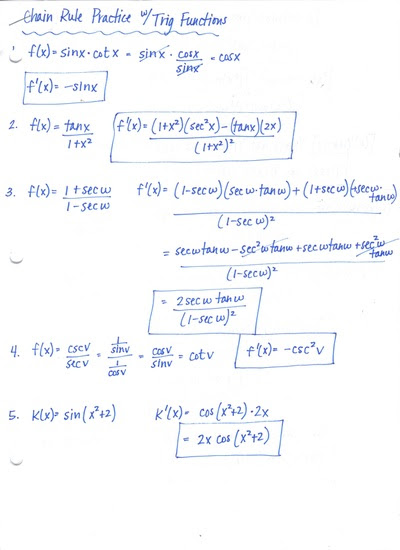 Chain Rule Practice w/ Trig Functions
1. f(x) = sinx · cotx = sinx · cosx/sinx = cosx
f'(x) = -sinx
2. f(x) = tanx/1+x² f'(x) = (1+x²)(sec²x) - (tanx)(2x)/(1+x²)²
3. f(x) = 1+secw/1-secw f'(x) = (1-secw)(secw·tanw)+(1+secw)(+secw·tanw)/(1-secw)²
= secwtanw - sec²wtanw + secwtanw + sec²wtanw/(1-secw)²
= 2secwtanw/(1-secw)²
4. f(x) = cscv/secv = 1/sinv/1/cosv = cosv/sinv = cotv f'(x) = -csc²v
5. K(x) = sin(x²+2) K'(x) = cos(x²+2)·2x
= 2x cos(x²+2)